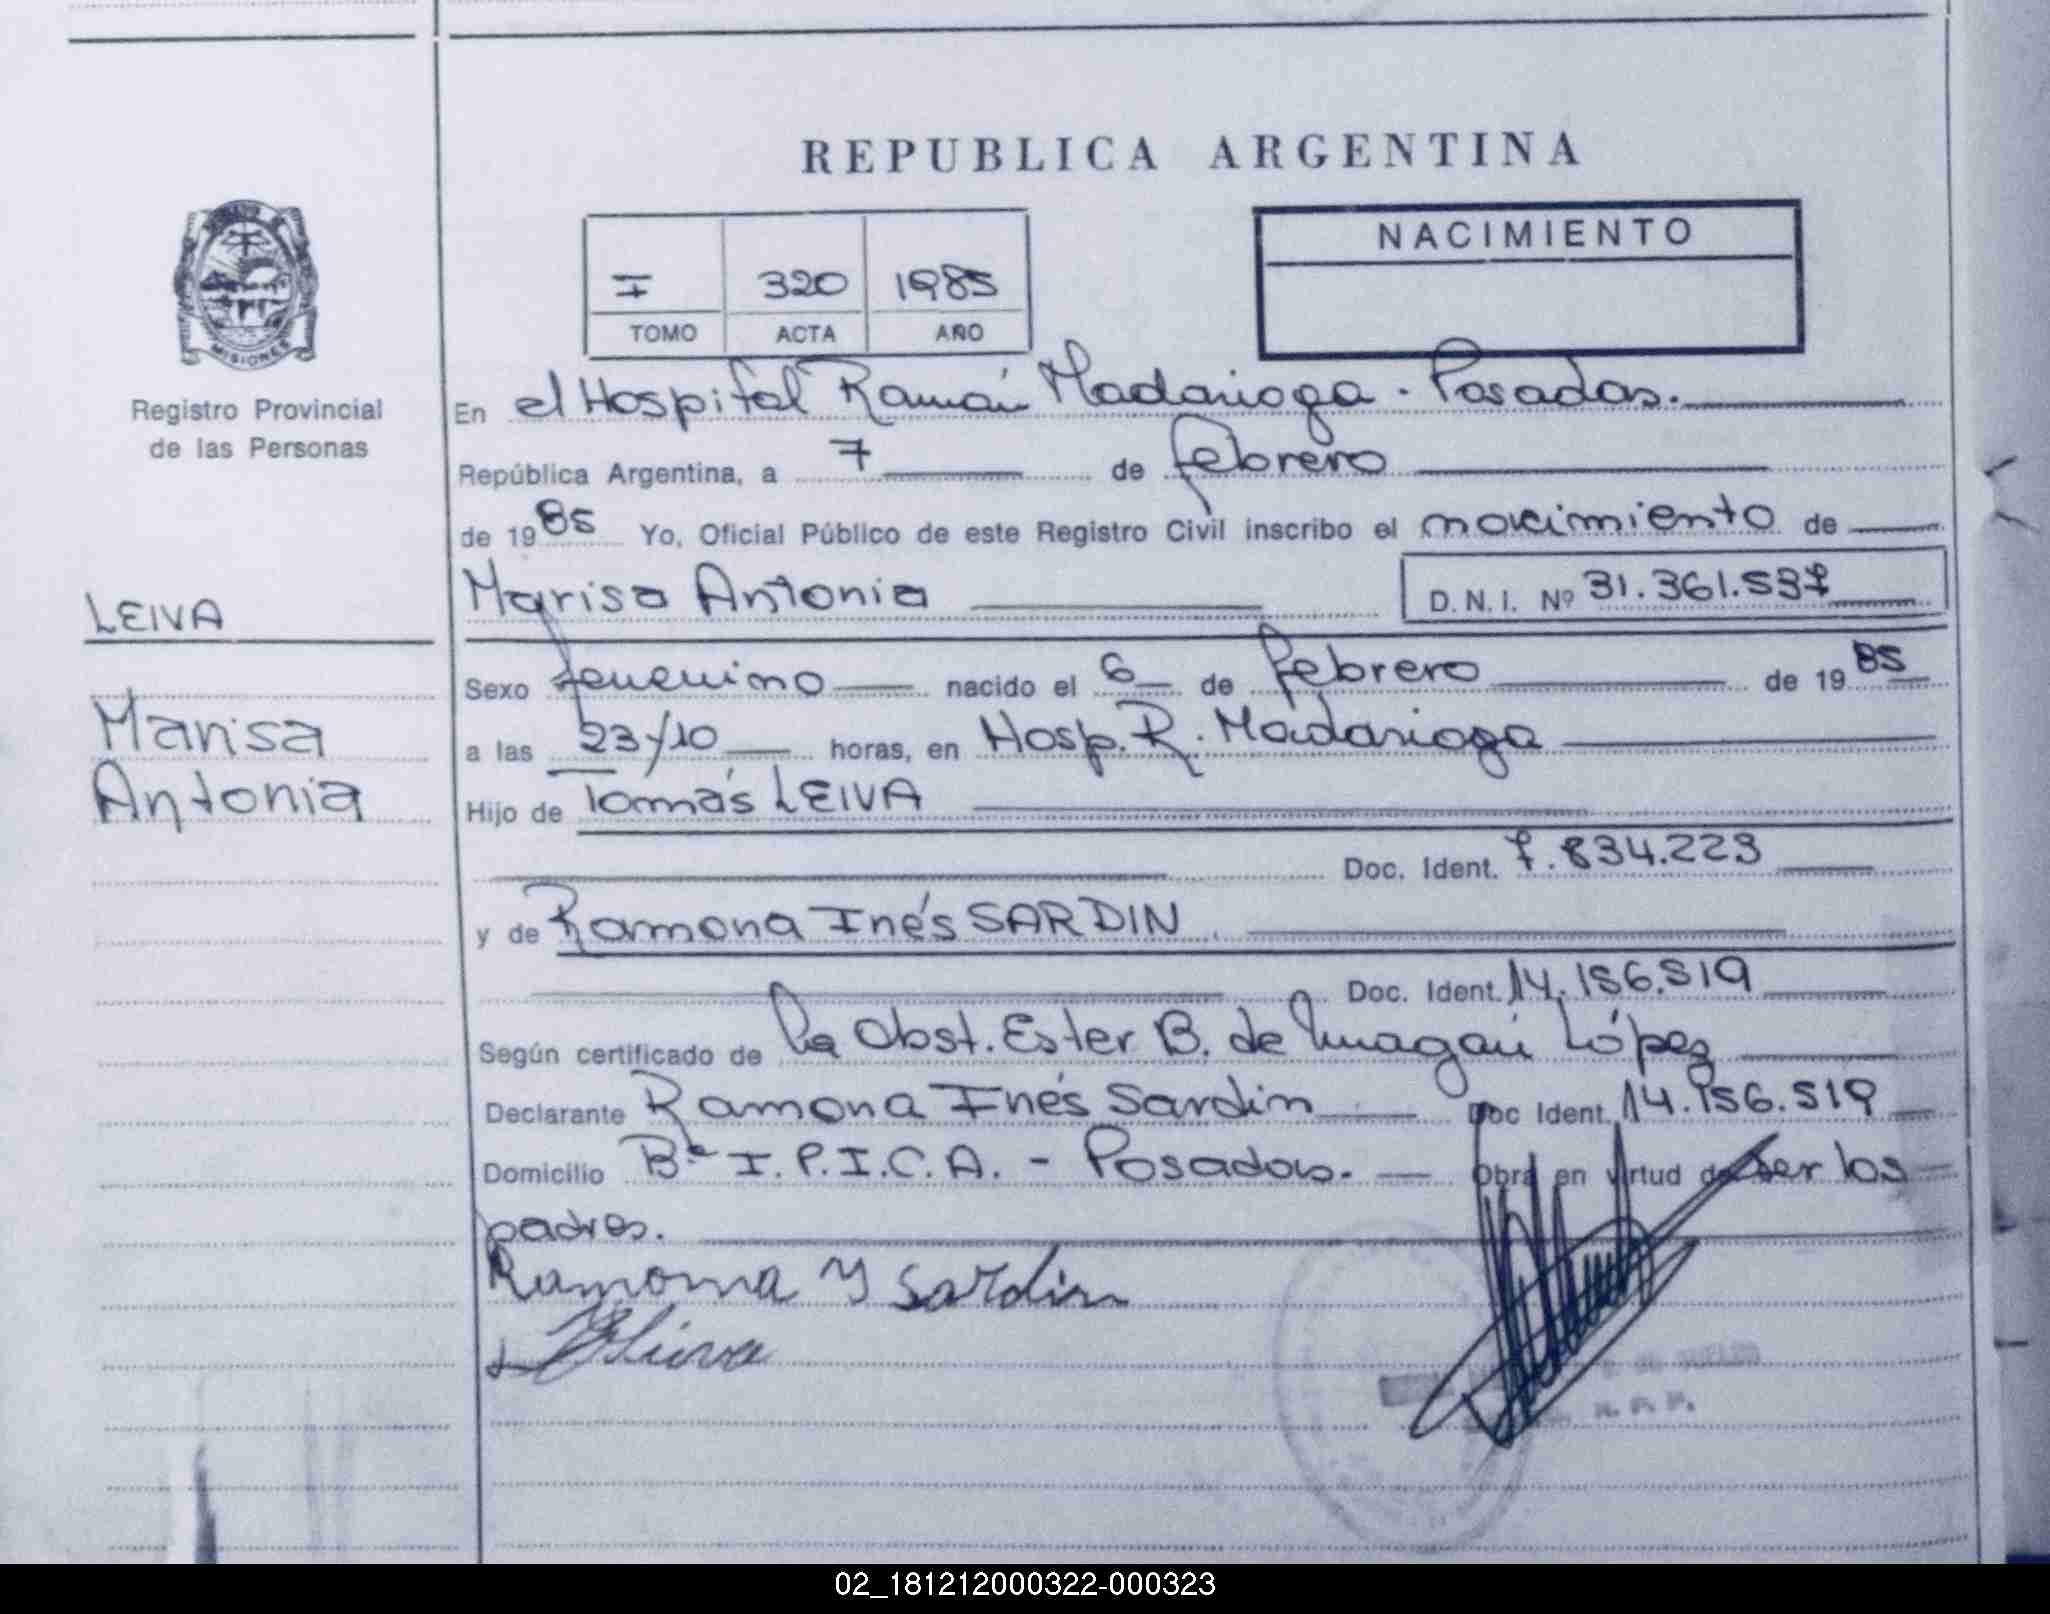 REPUBLICA ARGENTINA
NACIMIENTO
I 320 1985
TOMO ACTA AÑO
MISIONES
Registro Provincial
de las Personas
LEIVA
Marisa
Antonia
En el Hospital Ramón Madariaga - Posadas.
República Argentina, a 7 de febrero
de 1985 Yo, Oficial Público de este Registro Civil inscribo el nacimiento de
Marisa Antonia D.N.I. Nº 31.361.537
Sexo femenino nacido el 6 de febrero de 1985
a las 23/10 horas, en Hosp. R. Madariaga
Hijo de Tomás LEIVA
Doc. Ident. 7.834.223
y de Ramona Inés SARDIN
Doc. Ident. 14.156.519
Según certificado de la Obst. Ester B. de López
Declarante Ramona Inés Sardin Doc Ident. 14.156.519
Domicilio Bº I.P.I.C.A. - Posadas. Obra en virtud de ser los
padres.
Ramona Y Sardin
Leiva
02_181212000322-000323